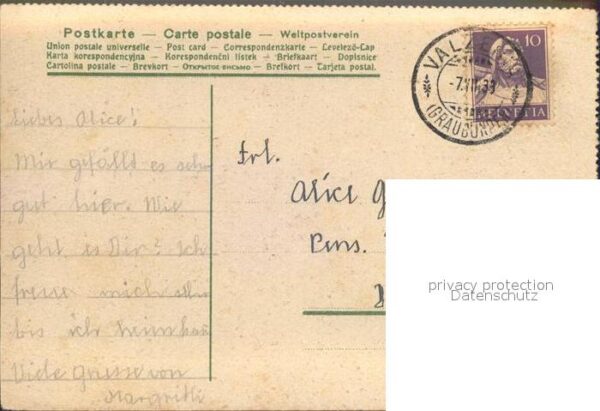 Postkarte – Carte postale – Weltpostverein
Union postale universelle – Post card – Correspondenzkarte – Levelező-Lap
Karta korespondencyjna – Korespondenční lístek – Briefkaart – Dopisnice
Cartolina postale – Brevkort – Открытое письмо – Brefkort – Tarjeta postal.
10
HELVETIA
(GRAUBÜNDEN)
Liebes Alice!
Mir gefällt es sehr
gut hier. Wie
geht es Dir? Ich
freue mich
bis ich heim
Viele Grüsse von
Margritli
Frl.
Alice G
Pens.
privacy protection
Datenschutz